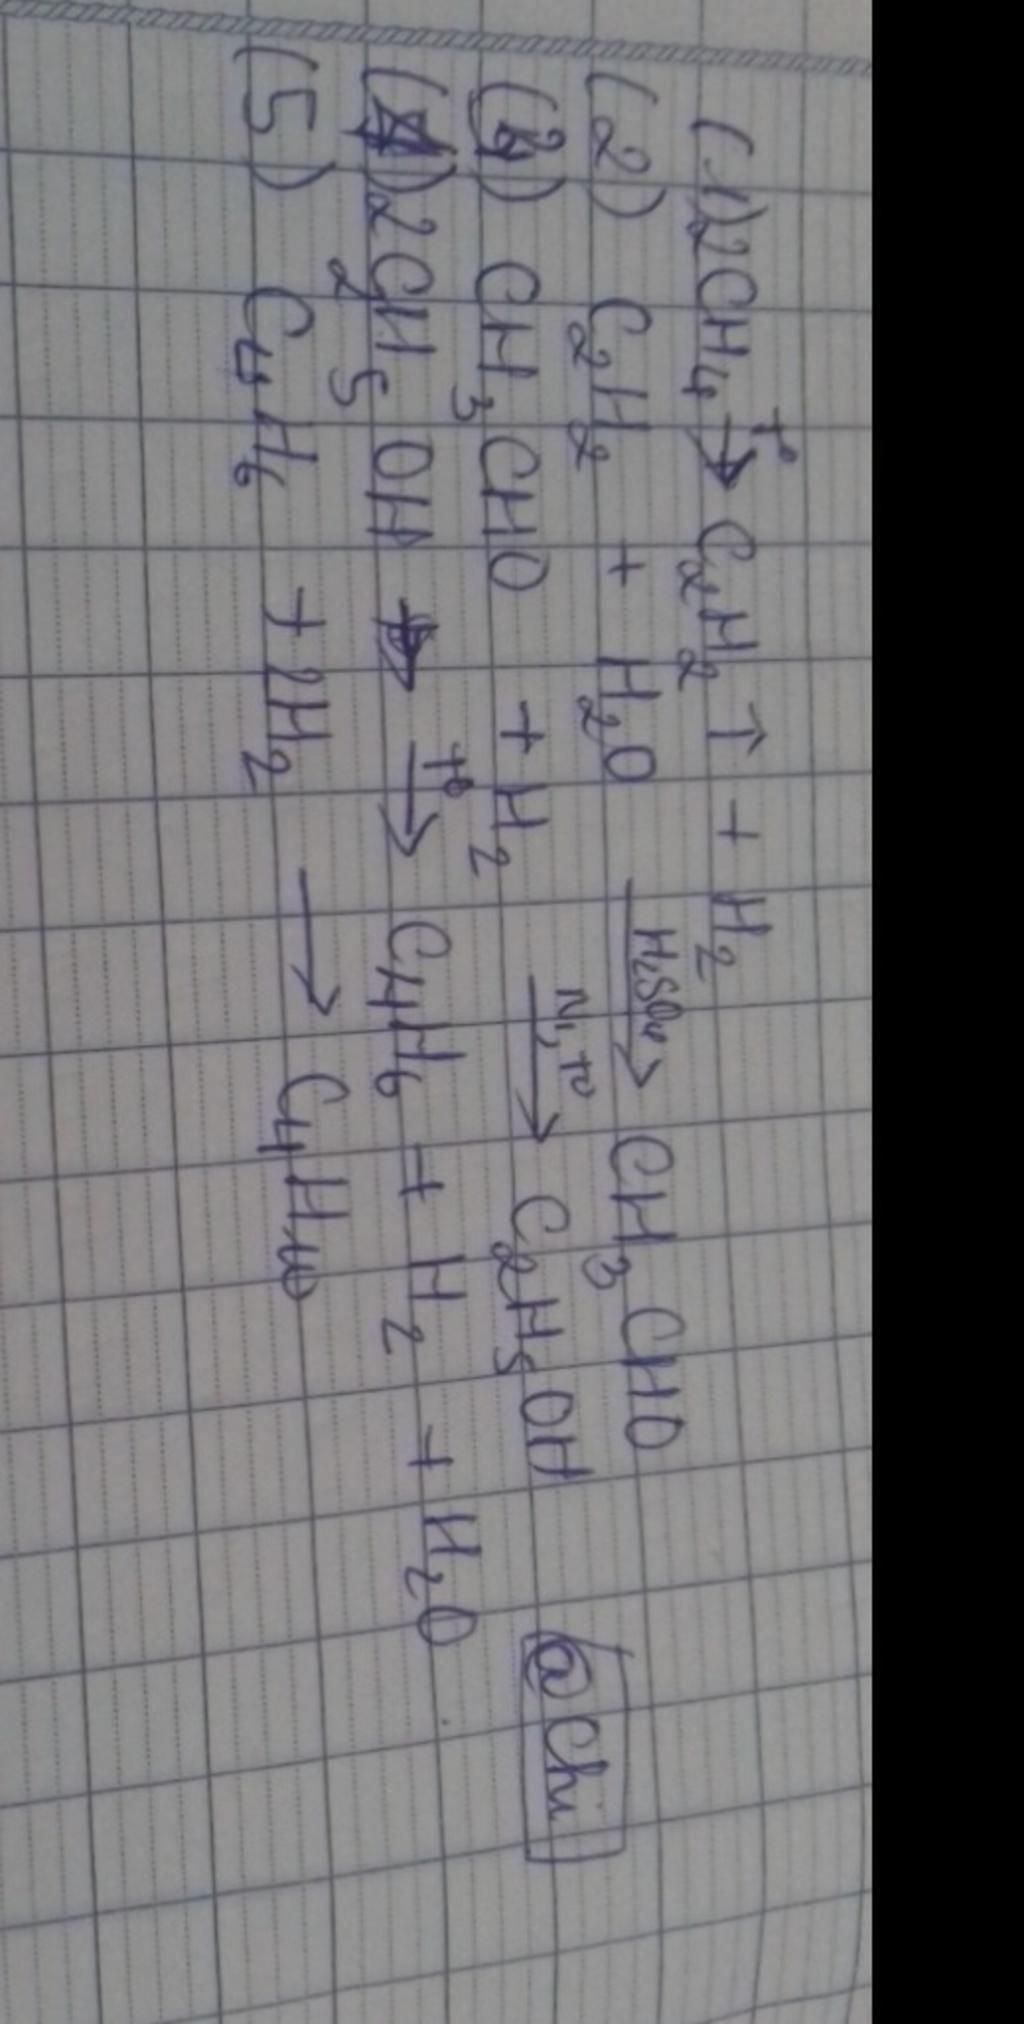 (1) 2CH₄ →(t°) C₂H₂ ↑ + H₂
(2) C₂H₂ + H₂O →(H₂SO₄) CH₃CHO
(3) CH₃CHO + H₂ →(Ni, t°) C₂H₅OH
@Chi
(4) 2C₂H₅OH →(t°) C₄H₆ + H₂ + H₂O
(5) C₄H₆ + 2H₂ → C₄H₁₀